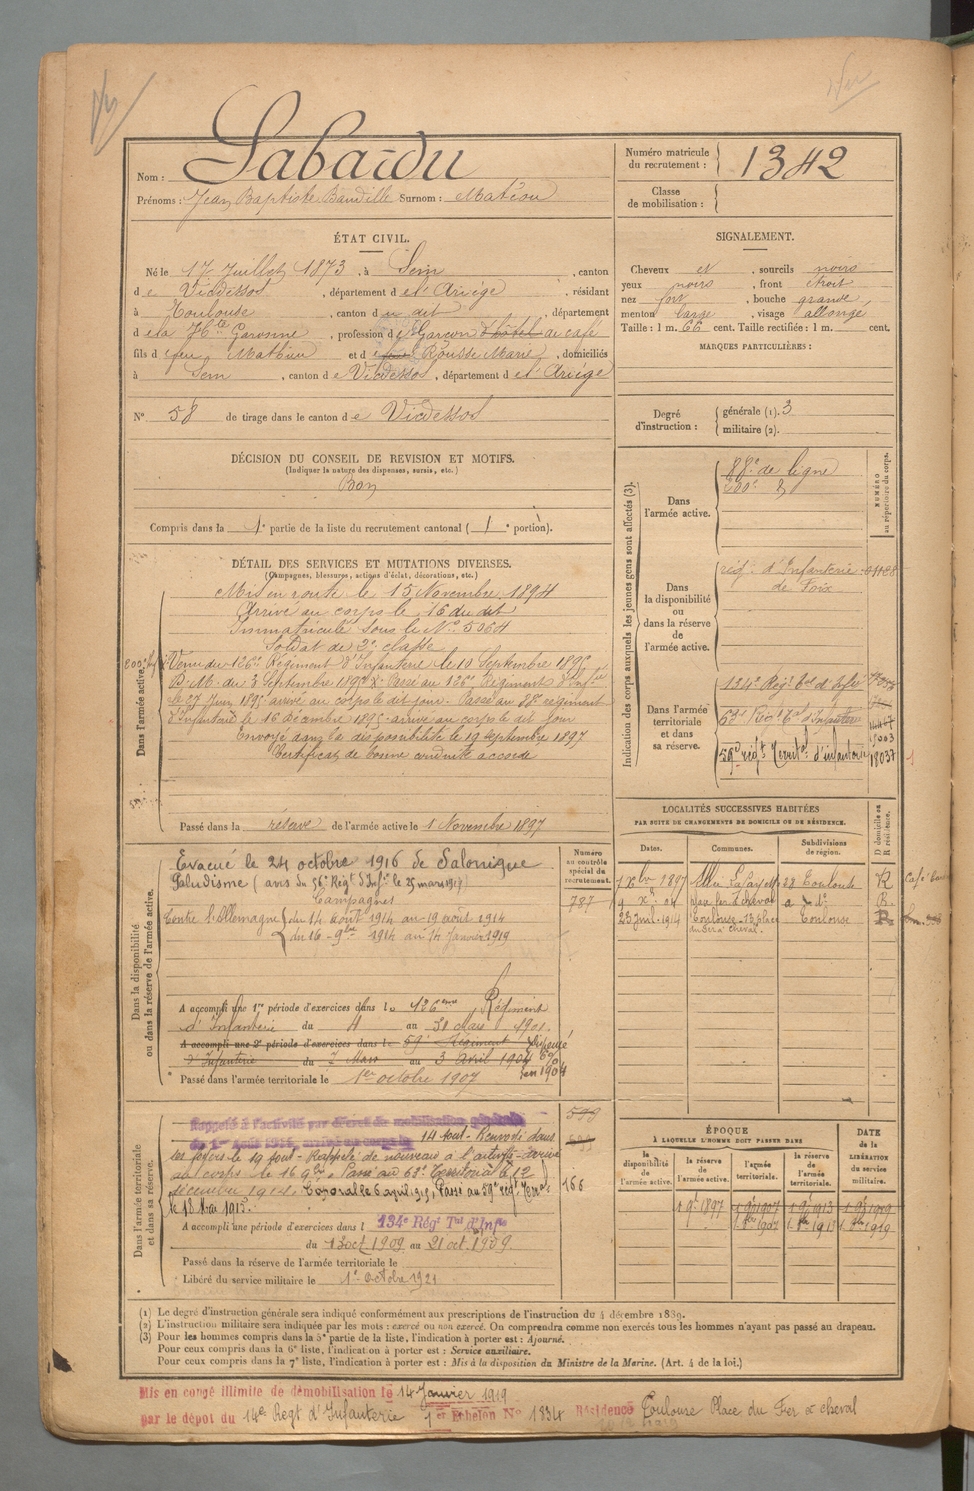 Nom : Labaïdu
Prénoms : Jean Baptiste Baudille Surnom : Matéou
Numéro matricule du recrutement : 1342
Classe de mobilisation :
ÉTAT CIVIL.
Né le 17 Juillet 1873, à Sem, canton
de Vicdessos, département de l'Ariège, résidant
à Toulouse, canton du dit, département
de la Hte Garonne, profession de Garçon d'hôtel de café
fils de feu Mathieu et de feue Rousse Marie, domiciliés
à Sem, canton de Vicdessos, département de l'Ariège
N° 58 de tirage dans le canton de Vicdessos
SIGNALEMENT.
Cheveux et, sourcils noirs
yeux noirs, front étroit
nez fort, bouche grande,
menton large, visage allongé
Taille : 1 m. 66 cent. Taille rectifiée : 1 m. cent.
MARQUES PARTICULIÈRES :
Degré d'instruction : générale (1). 3
militaire (2).
DÉCISION DU CONSEIL DE REVISION ET MOTIFS.
(Indiquer la nature des dispenses, sursis, etc.)
Bon
Compris dans la 1e partie de la liste du recrutement cantonal (1e portion).
DÉTAIL DES SERVICES ET MUTATIONS DIVERSES.
(Campagnes, blessures, actions d'éclat, décorations, etc.)
Dans l'armée active.
Mis en route le 15 Novembre 1894
Arrivé au corps le 16 du dit
Immatriculé sous le N° 5064
Soldat de 2e classe
Venu du 126e Régiment d'Infanterie le 10 Septembre
D. M. du 3 Septembre Passé au 126e Régiment d'Infie
le 27 Juin 1895 arrivé au corps le dit jour. Passé au 88e régiment
d'Infanterie le 16 décembre 1895 arrivé au corps le dit jour
Envoyé dans la disponibilité le 19 Septembre 1897
Certificat de bonne conduite accordé
Passé dans la réserve de l'armée active le 1 Novembre 1897
Indication des corps auxquels les jeunes gens sont affectés (3).
NUMÉRO au répertoire du corps.
Dans l'armée active.
88e de ligne
200e
Dans la disponibilité ou dans la réserve de l'armée active.
régt d'Infanterie de Foix
Dans l'armée territoriale et dans sa réserve.
134e Régt tal d'Infie
63e Régt tal d'Infanterie
59e régt Territal d'infanterie 18037
LOCALITÉS SUCCESSIVES HABITÉES
PAR SUITE DE CHANGEMENTS DE DOMICILE OU DE RÉSIDENCE.
Dates. Communes. Subdivisions de région. D domicile ou R résidence.
1 Xbre 1897 Toulouse R
place fer à cheval do R.
23 Juil. 1914 Toulouse 13 place du fer à cheval. Toulouse R
Dans la disponibilité ou dans la réserve de l'armée active.
Numéro au contrôle spécial du recrutement.
787
Evacué le 24 octobre 1916 de Salonique
Paludisme (avis du 56e Régt d'Infie le 25 mars 1917)
Campagnes
Contre l'Allemagne du 14 août 1914 au 19 août 1914
du 16 - 9bre 1914 au 14 Janvier 1919
A accompli une 1re période d'exercices dans le 126eme Régiment
d'Infanterie du 4 au 31 Mars 1901.
A accompli une 2e période d'exercices dans le 59e Régiment
d'Infanterie du 7 Mars au 3 Avril 1904
Dispensé en 1904
Passé dans l'armée territoriale le 1er octobre 1907
Dans l'armée territoriale et dans sa réserve.
Rappelé à l'activité par décret de mobilisation générale
du 1er Août 1914, arrivé au corps le 14 Aout - Renvoyé dans
ses foyers le 19 Aout - Rappelé de nouveau à l'activité - arrivé
au corps le 16 9bre. Passé au 63e Territorial le 12
décembre 1914. Caporal le 6 avril 1915, Passé au 59e régt Terral
le 18 Mai 1915.
166
A accompli une période d'exercices dans l 134e Régt Tal d'Infie
du 13 oct 1909 au 21 oct 1909
Passé dans la réserve de l'armée territoriale le
Libéré du service militaire le 1er Octobre 1921
ÉPOQUE
À LAQUELLE L'HOMME DOIT PASSER DANS
la disponibilité de l'armée active. la réserve de l'armée active. l'armée territoriale. la réserve de l'armée territoriale.
DATE de la LIBÉRATION du service militaire.
1 9bre 1897 1 9bre 1907 1 9bre 1913 1 9bre 1919
1 8bre 1907 1 8bre 1913 1 8bre 1919
(1) Le degré d'instruction générale sera indiqué conformément aux prescriptions de l'instruction du 4 décembre 1889.
(2) L'instruction militaire sera indiquée par les mots : exercé ou non exercé. On comprendra comme non exercés tous les hommes n'ayant pas passé au drapeau.
(3) Pour les hommes compris dans la 5e partie de la liste, l'indication à porter est : Ajourné.
Pour ceux compris dans la 6e liste, l'indication à porter est : Service auxiliaire.
Pour ceux compris dans la 7e liste, l'indication à porter est : Mis à la disposition du Ministre de la Marine. (Art. 4 de la loi.)
Mis en congé illimité de démobilisation le 14 Janvier 1919
par le dépôt du 14e Regt d'Infanterie 1er Echelon N° 1834 Résidence Toulouse Place du Fer à cheval